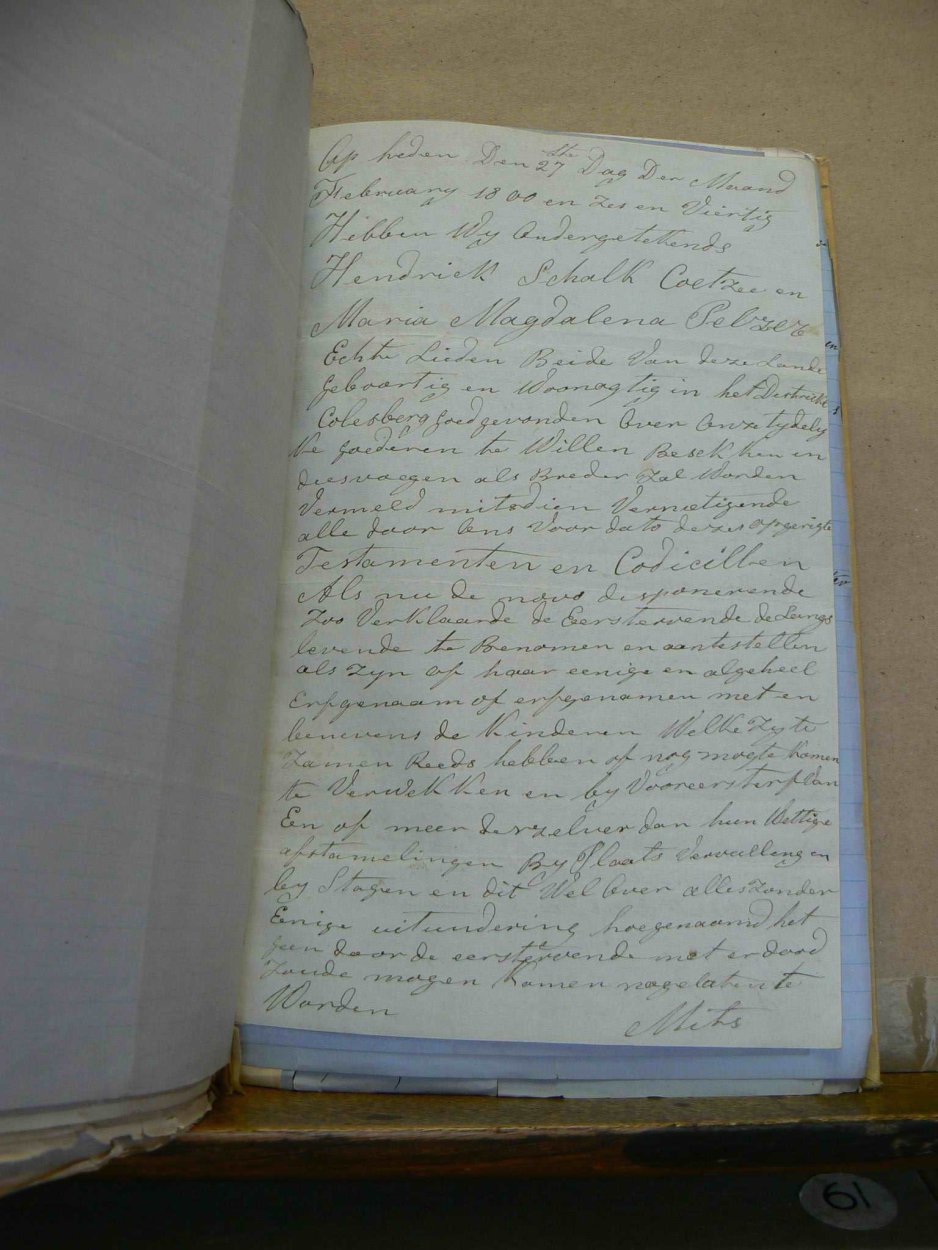 Op heden Den 27ste Dag Der Maand
February 1800 en zes en Viertig
Hibben Wy Ondergetekends
Hendrick Schalk Coetzee en
Maria Magdalena Pelzer
Echte Lieden Beide Van deze Lande
geboortig en Woonagtig in het Destrickt
Colesberg goedgevonden Over Onze tydely
ke goederen te Willen Besckken en
diesvoegen als Breder Zal Worden
Vermeld mitsdien Vernietigende
alle door Ons Voor dato dezes opgerigte
Testamenten en Codicillen
Als nu de novo desponerende
Zoo Verklaarde de Eerstervende de Langs
levende te Benomen en aantestellen
als zyn of haar eenige en algeheel
Erfgenaam of erfgenamen met en
benevens de Kinderen Welke Zy te
Zamen Reeds hebben of nog mogte Komen
te Verwekken en by Vooreersterf Van
Een of meer derzelver dan hun Wettige
afstamelingen By Plaats Vervulleng en
by Stagen en dit Wel Over alles zonder
Enige uitundering hoegenaamd het
geen door de eerstervende met er dood
Zoude mogen Komen nagelaten te
Worden
Mits
61